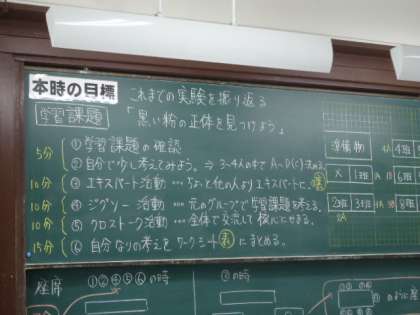 本時の目標 これまでの実験を振り返る
学習課題 「黒い粉の正体を見つけよう」
5分 ①学習課題の確認
②自分で少し考えてみよう。⇒3~4人の中でA~D( )決める
10分 ③エキスパート活動 …ちょっと他の人よりエキスパートに。裏
10分 ④ジグソー活動 …元のグループで学習課題を考える。
10分 ⑤クロストーク活動 …全体で交流して核心にせまる。
15分 ⑥自分なりの考えをワークシート表にまとめる。
準備物 4班
1班 6班
2班 3班 8班
座席 ①②④⑤⑥の時 ③の時
のように座